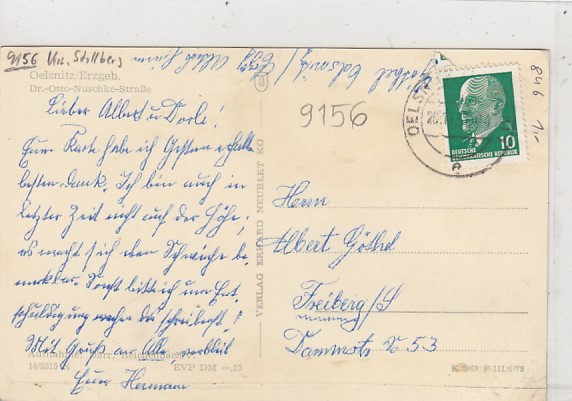 9156 Kr. Stollberg
Oelsnitz/Erzgeb.
Dr.-Otto-Nuschke-Straße
Lieber Albert u. Dorle!
Eure Karte habe ich Gestern erhalten
besten Dank. Ich bin auch in
letzter Zeit nicht auf der Höhe,
es macht sich eben Schwäche be-
merkbar. Sonst bitte ich um Ent-
schuldigung wegen des schreibens
Mit Gruß an Alle verbleib
Euer Hermann
Aufnahme: Darr, Reichenbach
14/5515 N
EVP DM —,15
VERLAG ERHARD NEUBERT KG
9156
OELSNITZ
10
DEUTSCHE
DEMOKRATISCHE REPUBLIK
e
846
Herrn
Albert Göthel
Freiberg/S
Dammstr. 53
K 5/63 P III/6/78